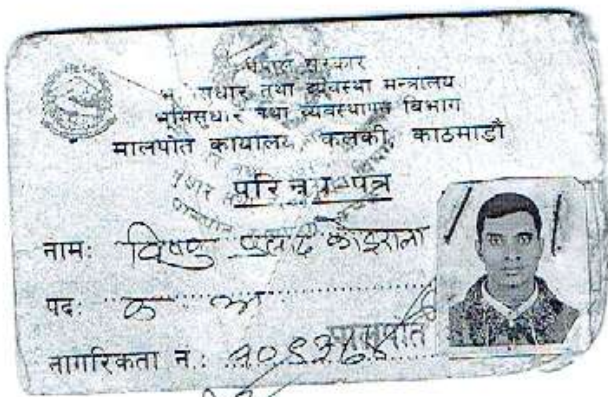 नेपाल सरकार
भूमिसुधार तथा व्यवस्था मन्त्रालय
भूमिसुधार तथा व्यवस्थापन विभाग
मालपोत कार्यालय, कलंकी, काठमाडौं
परिचय-पत्र
नाम: विष्णु प्रसाद कोइराला
पद:
नागरिकता नं.:
मालपोत